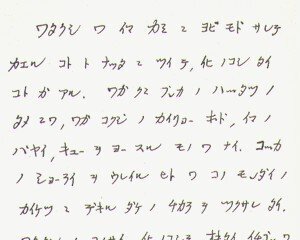 ワタクシ ワ イマ カミ ニ ヨビ モドサレテ
カエル コト ト ナッタ ニ ツイテ, イヒ ノコシ タイ
コト ガ アル. ワガ クニ ブンカ ノ ハッタツ ノ
タメ ニワ, ワガ コクジ ノ カイリョー ホド, イマ ノ
バヤイ, キュー ヲ ヨースル モノ ワ ナイ. コッカ
ノ ショーライ ヲ ウレイル ヒト ワ コノ モンダイ ノ
カイケツ ニ デキル ダケ ノ チカラ ヲ ツクサレ タイ.